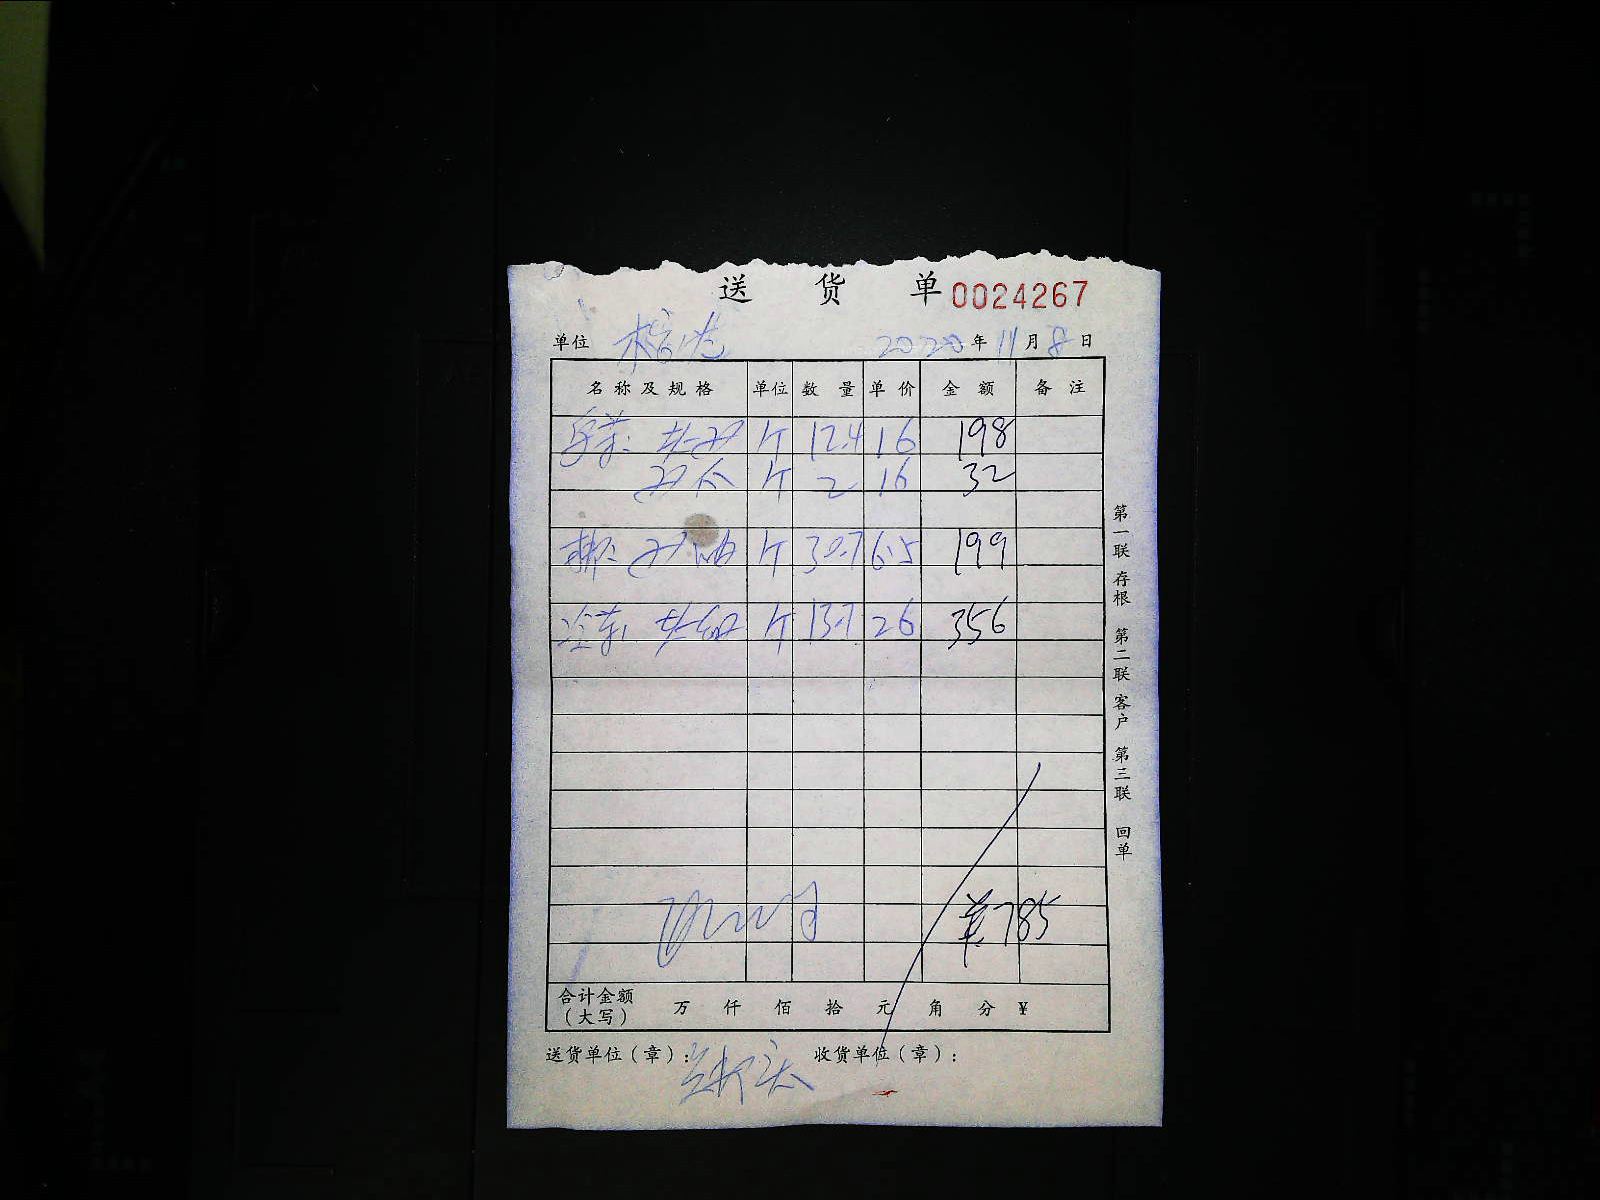 送 货 单 0024267
单位 2020 年 11 月 8 日
名称及规格 单位 数量 单价 金额 备注
斤 12.4 16 198
斤 2 16 32
斤 30.7 6.5 199
斤 13.7 26 356
785
合计金额（大写） 万 仟 佰 拾 元 角 分 ¥
送货单位（章）： 收货单位（章）：
第一联 存根 第二联 客户 第三联 回单